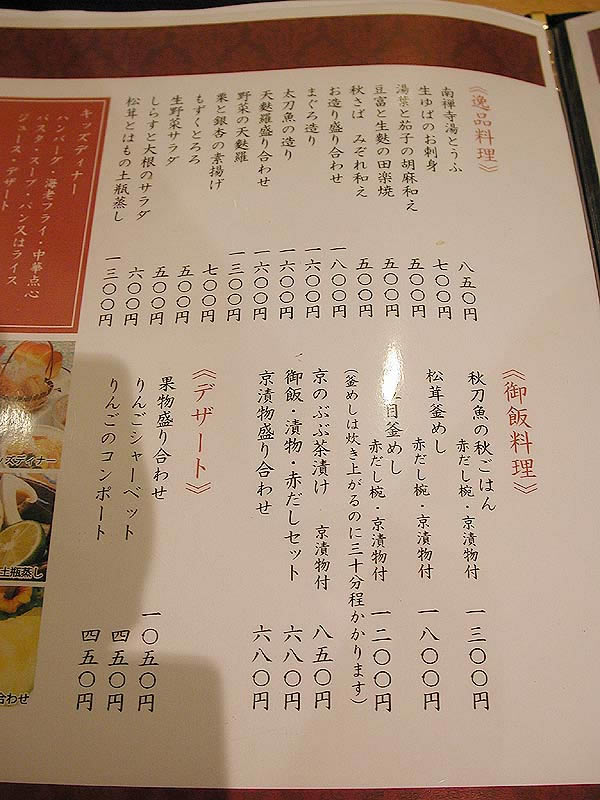 《逸品料理》
南禅寺湯とうふ 八五〇円
生ゆばのお刺身 七〇〇円
湯葉と茄子の胡麻和え 五〇〇円
豆富と生麩の田楽焼 五〇〇円
秋さば みぞれ和え 五〇〇円
お造り盛り合わせ 一八〇〇円
まぐろ造り 一六〇〇円
太刀魚の造り 一六〇〇円
天麩羅盛り合わせ 一六〇〇円
野菜の天麩羅 一三〇〇円
栗と銀杏の素揚げ 七〇〇円
もずくとろろ 五〇〇円
生野菜サラダ 五〇〇円
しらすと大根のサラダ 六〇〇円
松茸とはもの土瓶蒸し 一三〇〇円
キッズディナー
ハンバーグ・海老フライ・中華点心
パスタ・スープ・パン又はライス
ジュース・デザート
《御飯料理》
秋刀魚の秋ごはん 赤だし椀・京漬物付 一三〇〇円
松茸釜めし 赤だし椀・京漬物付 一八〇〇円
目釜めし 赤だし椀・京漬物付 一二〇〇円
(釜めしは炊き上がるのに三十分程かかります)
京のぶぶ茶漬け 京漬物付 八五〇円
御飯・漬物・赤だしセット 六八〇円
京漬物盛り合わせ 六八〇円
《デザート》
果物盛り合わせ 一〇五〇円
りんごシャーベット 四五〇円
りんごのコンポート 四五〇円
ズディナー
土瓶蒸し
合わせ